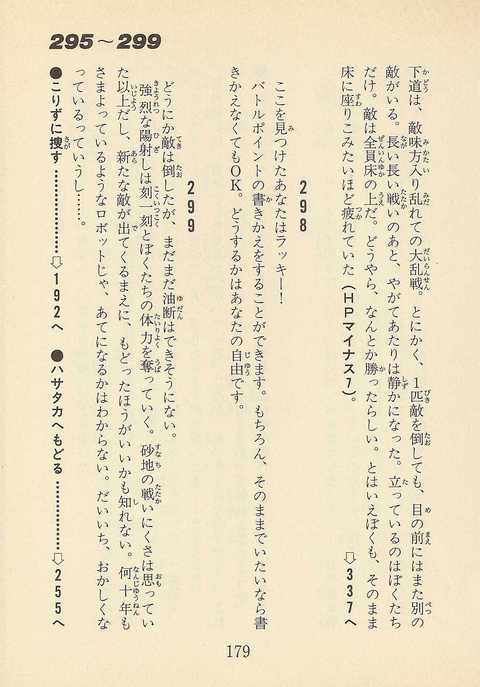 295～299
下道は、敵味方入り乱れての大乱戦。とにかく、1匹敵を倒しても、目の前にはまた別の
敵がいる。長い長い戦いのあと、やがてあたりは静かになった。立っているのはぼくたち
だけ。敵は全員床の上だ。どうやら、なんとか勝ったらしい。とはいえぼくも、そのまま
床に座りこみたいほど疲れていた（HPマイナス7）。
⇨337へ
298
ここを見つけたあなたはラッキー！
バトルポイントの書きかえをすることができます。もちろん、そのままでいたいなら書
きかえなくてもOK。どうするかはあなたの自由です。
299
どうにか敵は倒したが、まだまだ油断はできそうにない。
強烈な陽射しは刻一刻とぼくたちの体力を奪っていく。砂地の戦いにくさは思ってい
た以上だし、新たな敵が出てくるまえに、もどったほうがいいかも知れない。何十年も
さまよっているようなロボットじゃ、あてになるかはわからない。だいいち、おかしくな
っているっていうし……。
●こりずに捜す…………⇨192へ　●ハサタカへもどる…………⇨255へ
179